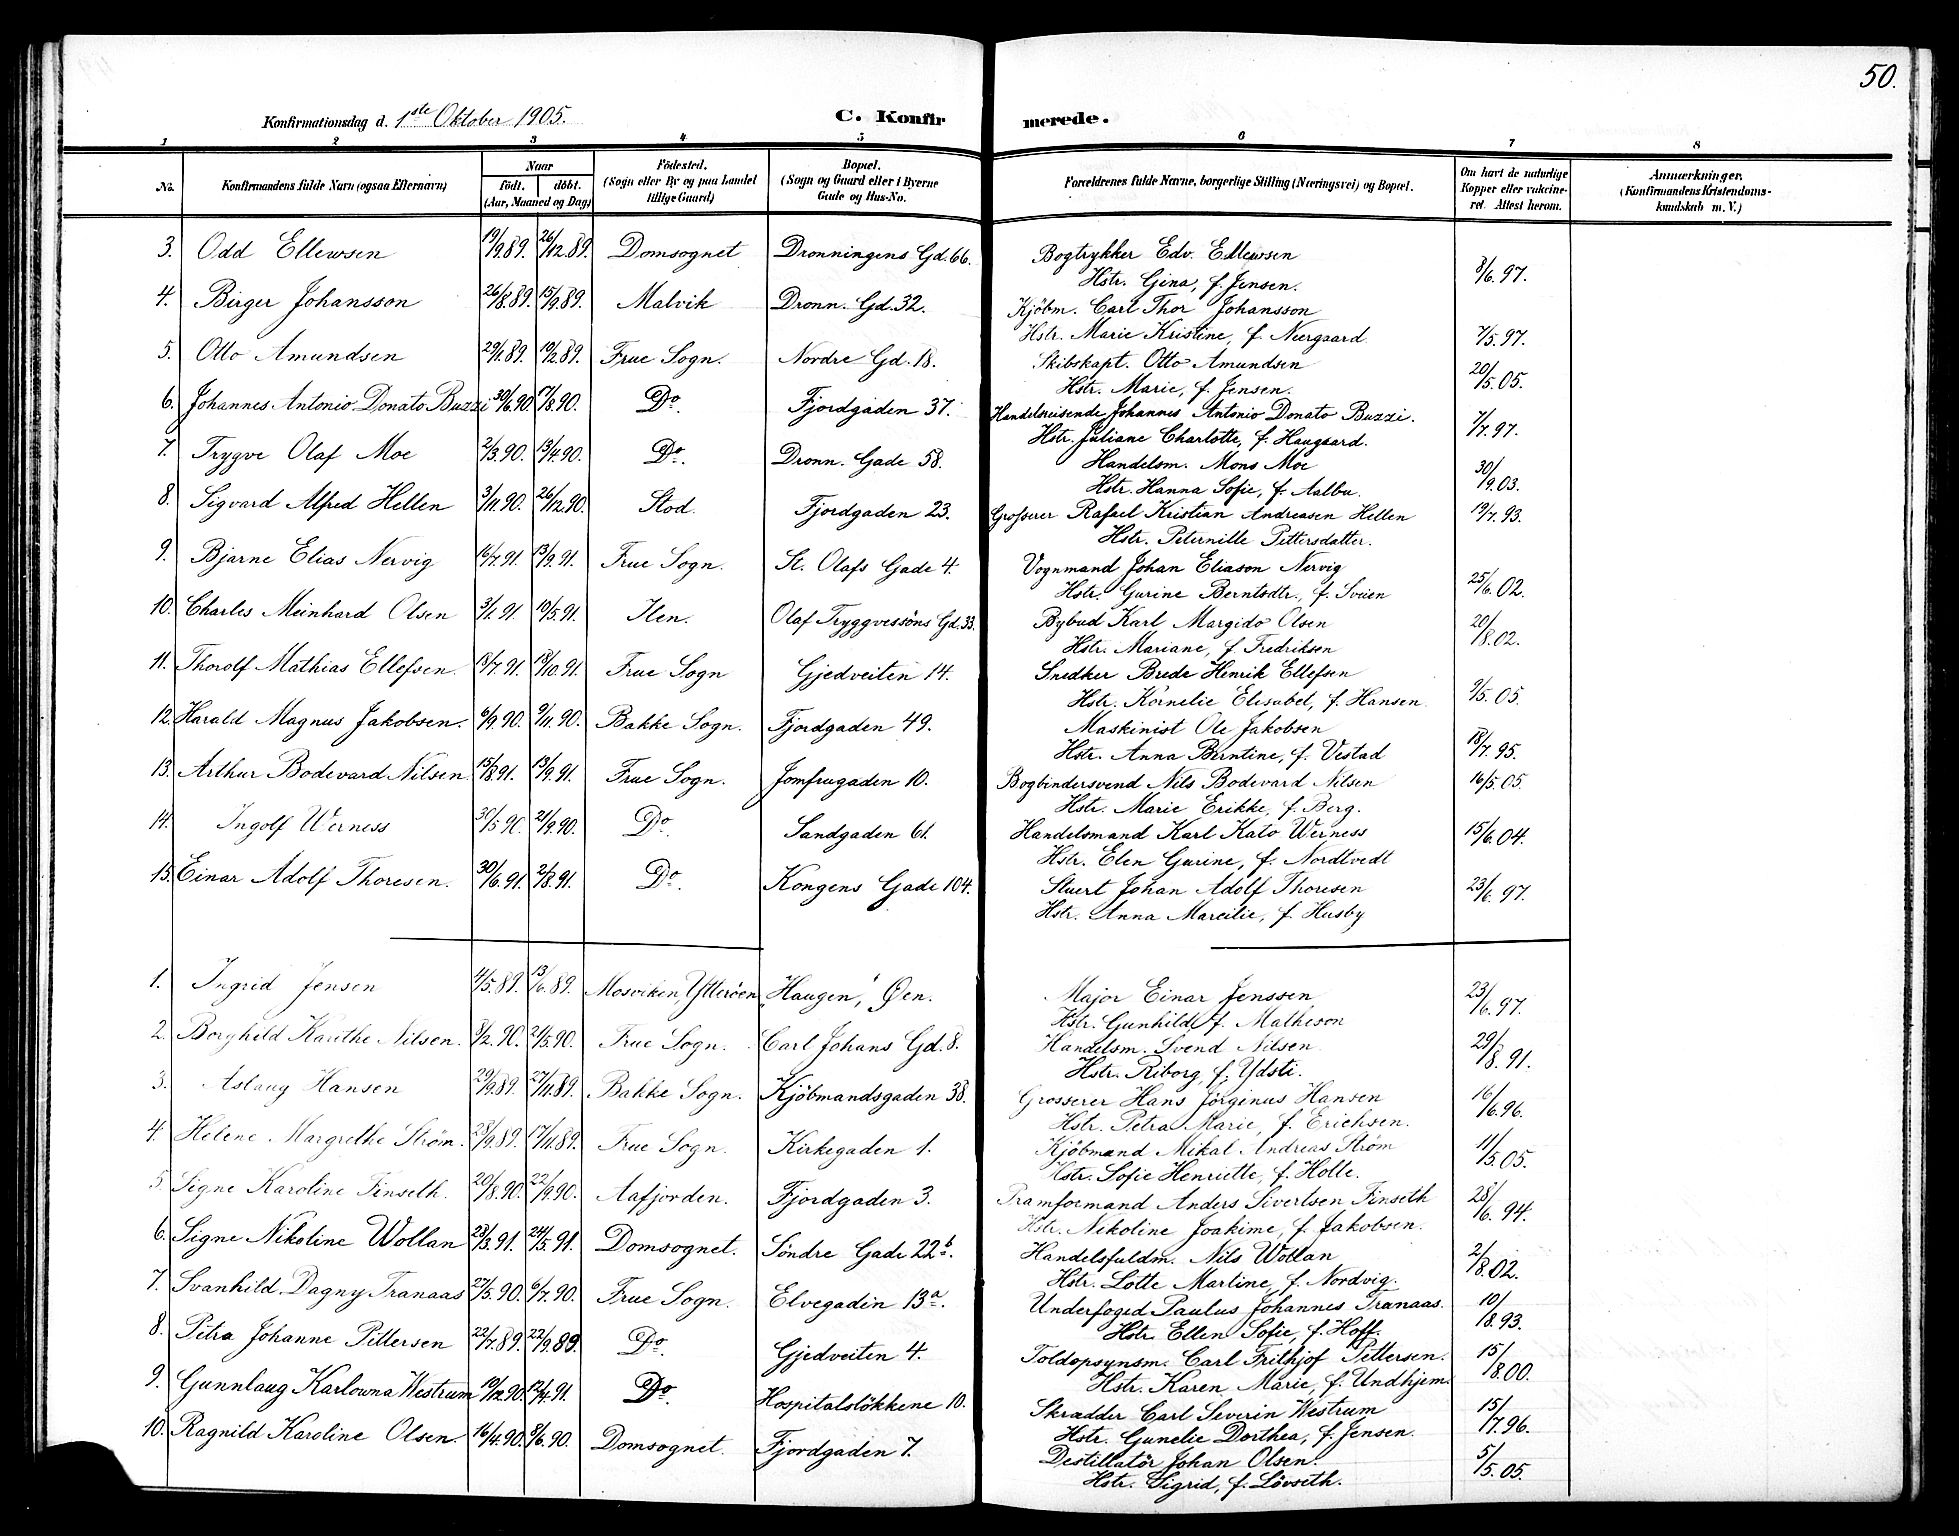 50.
Konfirmationsdag d. 1ste Oktober 1905.
C. Konfirmerede.
1 2 3 4 5 6 7 8
No.
Konfirmandens fulde Navn (ogsaa Efternavn)
Naar
födt. döbt.
(Aar, Maaned og Dag)
Födested.
(Sogn eller By og paa Landet
tillige Gaard)
Bopæl.
(Sogn og Gaard eller i Byerne
Gade og Hus-No.
Forældrenes fulde Navne, borgerlige Stilling (Næringsvei) og Bopæl.
Om havt de naturlige
Kopper eller vaksine-
ret. Attest herom.
Anmærkninger.
(Konfirmandens Kristendoms-
kundskab m. V.)
3. Odd Ellewsen 19/9.89. 26/12.89. Domsognet Dronningens Gd. 66. Bogtrykker Edv. Ellewsen
Hstr. Gina, f. Jensen. 3/6.97.
4. Birger Johansson 26/8.89. 15/9.89. Malvik Dronn. Gd. 32. Kjöbm. Carl Thor Johansson
Hstr. Marie Kristine, f. Neergaard 7/5.97.
5. Otto Amundsen 29/1.89. 19/2.89. Frue Sogn. Nordre Gd. 18. Skibskapt. Otto Amundsen
Hstr. Marie, f. Jensen. 20/5.05.
6. Johannes Antonio Donato Buzzi 30/6.90. 17/8.90. Do. Fjordgaden 37. Handelsreisende Johannes Antonio Donato Buzzi.
Hstr. Juliane Charlotte, f. Haugaard. 7/7.97.
7. Trygve Olaf Moe 2/3.90. 13/4.90. Do. Dronn. Gade 58. Handelsm. Mons Moe
Hstr. Hanna Sofie, f. Aalbu. 30/9.03.
8. Sigvard Alfred Hellen 3/11.90. 26/12.90. Stod. Fjordgaden 23. Grosserer Rafael Kristian Andreasen Hellen 19/7.93.
Hstr. Peternille Pettersdatter.
9. Bjarne Elias Nervig 16/7.91. 13/9.91. Frue Sogn. St. Olafs Gade 4. Vognmand Johan Eliason Nervig
Hstr. Gurine Berntsdtr., f. Sveen 25/6.02.
10. Charles Meinhard Olsen 3/1.91. 10/5.91. Ilen. Olaf Tryggvessöns Gd. 33. Bybud Karl Margido Olsen
Hstr. Mariane, f. Fredriksen 20/8.02.
11. Thorolf Mathias Ellefsen. 13/7.91. 18/10.91. Frue Sogn Gjedveiten 14. Snedker Brede Henrik Ellefsen
Hstr. Kornelie Elisabet, f. Hansen. 9/5.05.
12. Harald Magnus Jakobsen. 6/9.90. 9/11.90. Bakke Sogn. Fjordgaden 49. Maskinist Ole Jakobsen
Hstr. Anna Berntine, f. Vestad 18/7.95.
13. Arthur Bodevard Nilsen. 15/8.91. 13/9.91. Frue Sogn. Jomfrugaden 10. Bogbindersvend Nils Bodevard Nilsen 16/5.05.
Hstr. Marie Erikke, f. Berg.
14. Ingolf Werness 30/5.90. 21/9.90. Do. Sandgaden 61. Handelsmand Karl Kato Werness 15/6.04.
Hstr. Elen Gurine, f. Nordtvedt
15. Einar Adolf Thoresen. 30/6.91. 2/8.91. Do. Kongens Gade 104. Stuert Johan Adolf Thoresen 23/6.97.
Hstr. Anna Marcilie, f. Husby
1. Ingrid Jensen 4/5.89. 13/6.89. Mosviken, Ytteröen "Haugen", Øen. Major Einar Jenssen
Hstr. Gunhild, f. Matheson 23/6.97.
2. Borghild Karithe Nilsen. 8/2.90. 21/5.90. Frue Sogn. Carl Johans Gd. 8. Handelsm. Svend Nilsen
Hstr. Riborg, f. Ydsti. 29/8.91.
3. Aslaug Hansen 29/9.89. 27/11.89. Bakke Sogn. Kjöbmandsgaden 38. Grosserer Hans Jörginus Hansen
Hstr. Petra Marie, f. Erichsen. 16/6.96.
4. Helene Margrethe Ström. 28/9.89. 17/11.89. Frue Sogn. Kirkegaden 1. Kjöbmand Mikal Andreas Ström
Hstr. Sofie Henriette, f. Holte. 11/5.05.
5. Signe Karoline Finseth. 20/8.90. 22/9.90. Aafjorden. Fjordgaden 3. Pramformand Anders Sivertsen Finseth
Hstr. Nikoline Joakime, f. Jakobsen. 28/6.94.
6. Signe Nikoline Wollan 28/3.91. 24/5.91. Domsognet. Söndre Gade 22b. Handelsfuldm. Nils Wollan
Hstr. Lotte Martine, f. Nordvig. 2/8.02.
7. Svanhild Dagny Tranaas 27/5.90. 6/7.90. Frue Sogn. Elvegaden 13a. Underfoged Paulus Johannes Tranaas.
Hstr. Ellen Sofie, f. Hoff. 10/8.93.
8. Petra Johanne Pettersen 22/7.89. 22/9.89. Do. Gjedveiten 4. Toldopsynsm. Carl Frithjof Pettersen.
Hstr. Karen Marie, f. Undhjem. 15/8.00.
9. Gunnlaug Karlowna Westrum 19/12.90. 12/4.91. Do. Hospitalslökkene 10. Skrædder Carl Severin Westrum
Hstr. Gunelie Dorthea, f. Jensen. 15/7.96.
10. Ragnild Karoline Olsen. 16/4.90. 8/6.90. Domsognet. Fjordgaden 7. Destillatör Johan Olsen.
Hstr. Sigrid, f. Lövseth. 5/5.05.